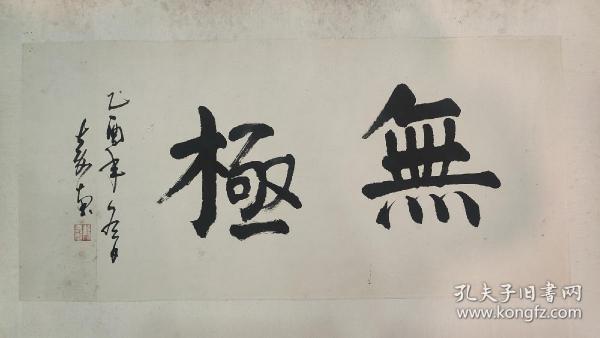 無極
乙酉年冬月
孔夫子旧书网
www.kongfz.com